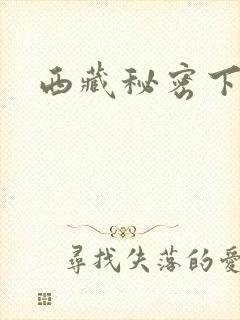 西藏秘密下
尋找失落的愛